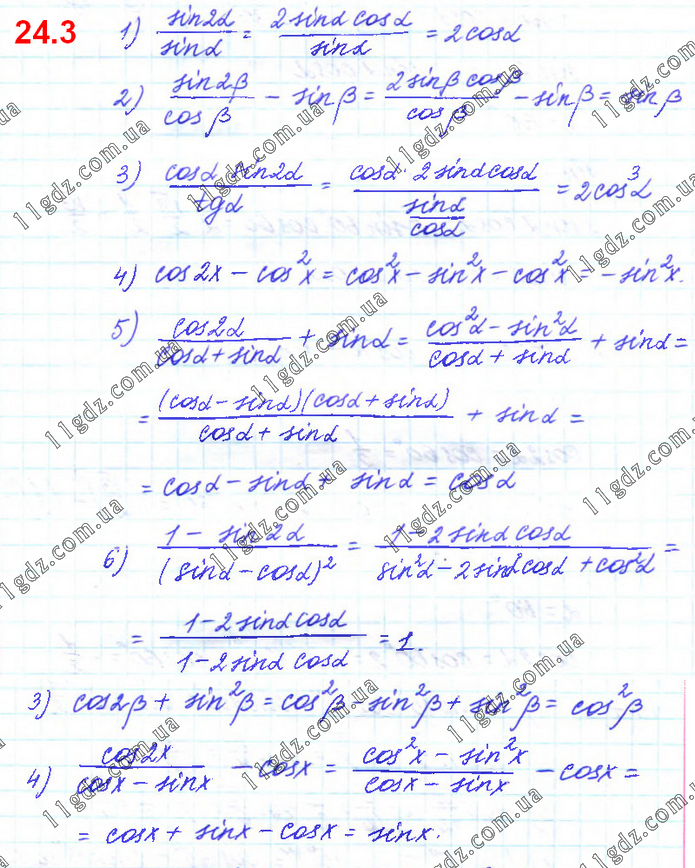 24.3
1) sin2α/sinα = 2sinα cosα/sinα = 2cosα
2) sin2β/cosβ - sinβ = 2sinβ cosβ/cosβ - sinβ = sinβ
3) cosα sin2α/tgα = cosα 2sinαcosα/(sinα/cosα) = 2cos³α
4) cos2x - cos²x = cos²x - sin²x - cos²x = -sin²x.
5) cos2α/(cosα + sinα) + sinα = (cos²α - sin²α)/(cosα + sinα) + sinα =
= (cosα - sinα)(cosα + sinα)/(cosα + sinα) + sinα =
= cosα - sinα + sinα = cosα
6) (1 - sin2α)/(sinα - cosα)² = (1 - 2sinα cosα)/(sin²α - 2sin²cosα + cos²α) =
= (1 - 2sinα cosα)/(1 - 2sinα cosα) = 1.
3) cos2β + sin²β = cos²β - sin²β + sin²β = cos²β
4) cos2x/(cosx - sinx) - cosx = (cos²x - sin²x)/(cosx - sinx) - cosx =
= cosx + sinx - cosx = sinx.
11gdz.com.ua